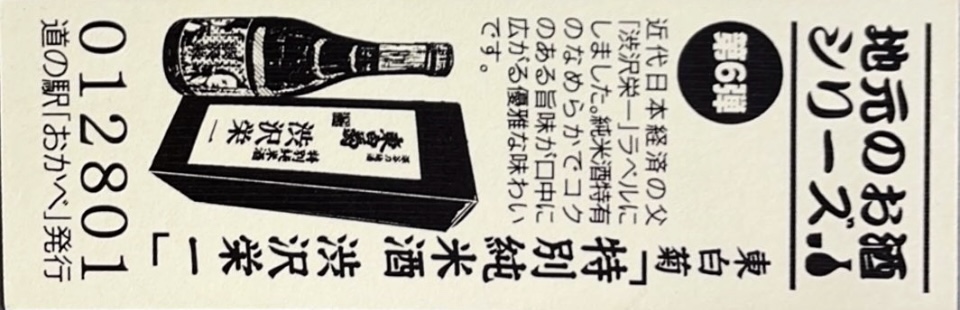 地元のお酒
シリーズ!
第6弾
東白菊
「特別純米酒 渋沢栄一」
近代日本経済の父
「渋沢栄一」ラベルに
しました。純米酒特有
のなめらかでコク
のある旨味が口中に
広がる優雅な味わい
です。
東白菊
特別純米酒
渋沢栄一
012801
道の駅「おかべ」発行